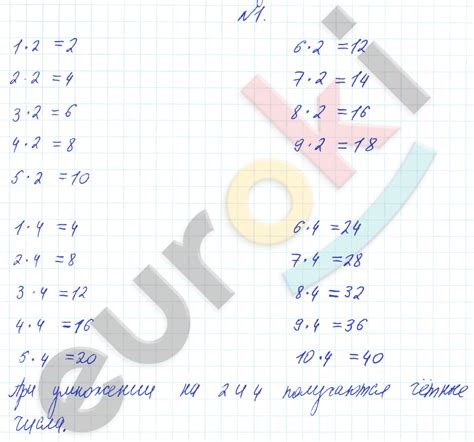 №1.
1·2 =2
2·2 =4
3·2 =6
4·2 =8
5·2 =10
6·2 =12
7·2 =14
8·2 =16
9·2 =18
1·4 =4
2·4 =8
3·4 =12
4·4 =16
5·4 =20
6·4 =24
7·4 =28
8·4 =32
9·4 =36
10·4 =40
При умножении на 2 и 4 получаются чётные
числа.
euroki